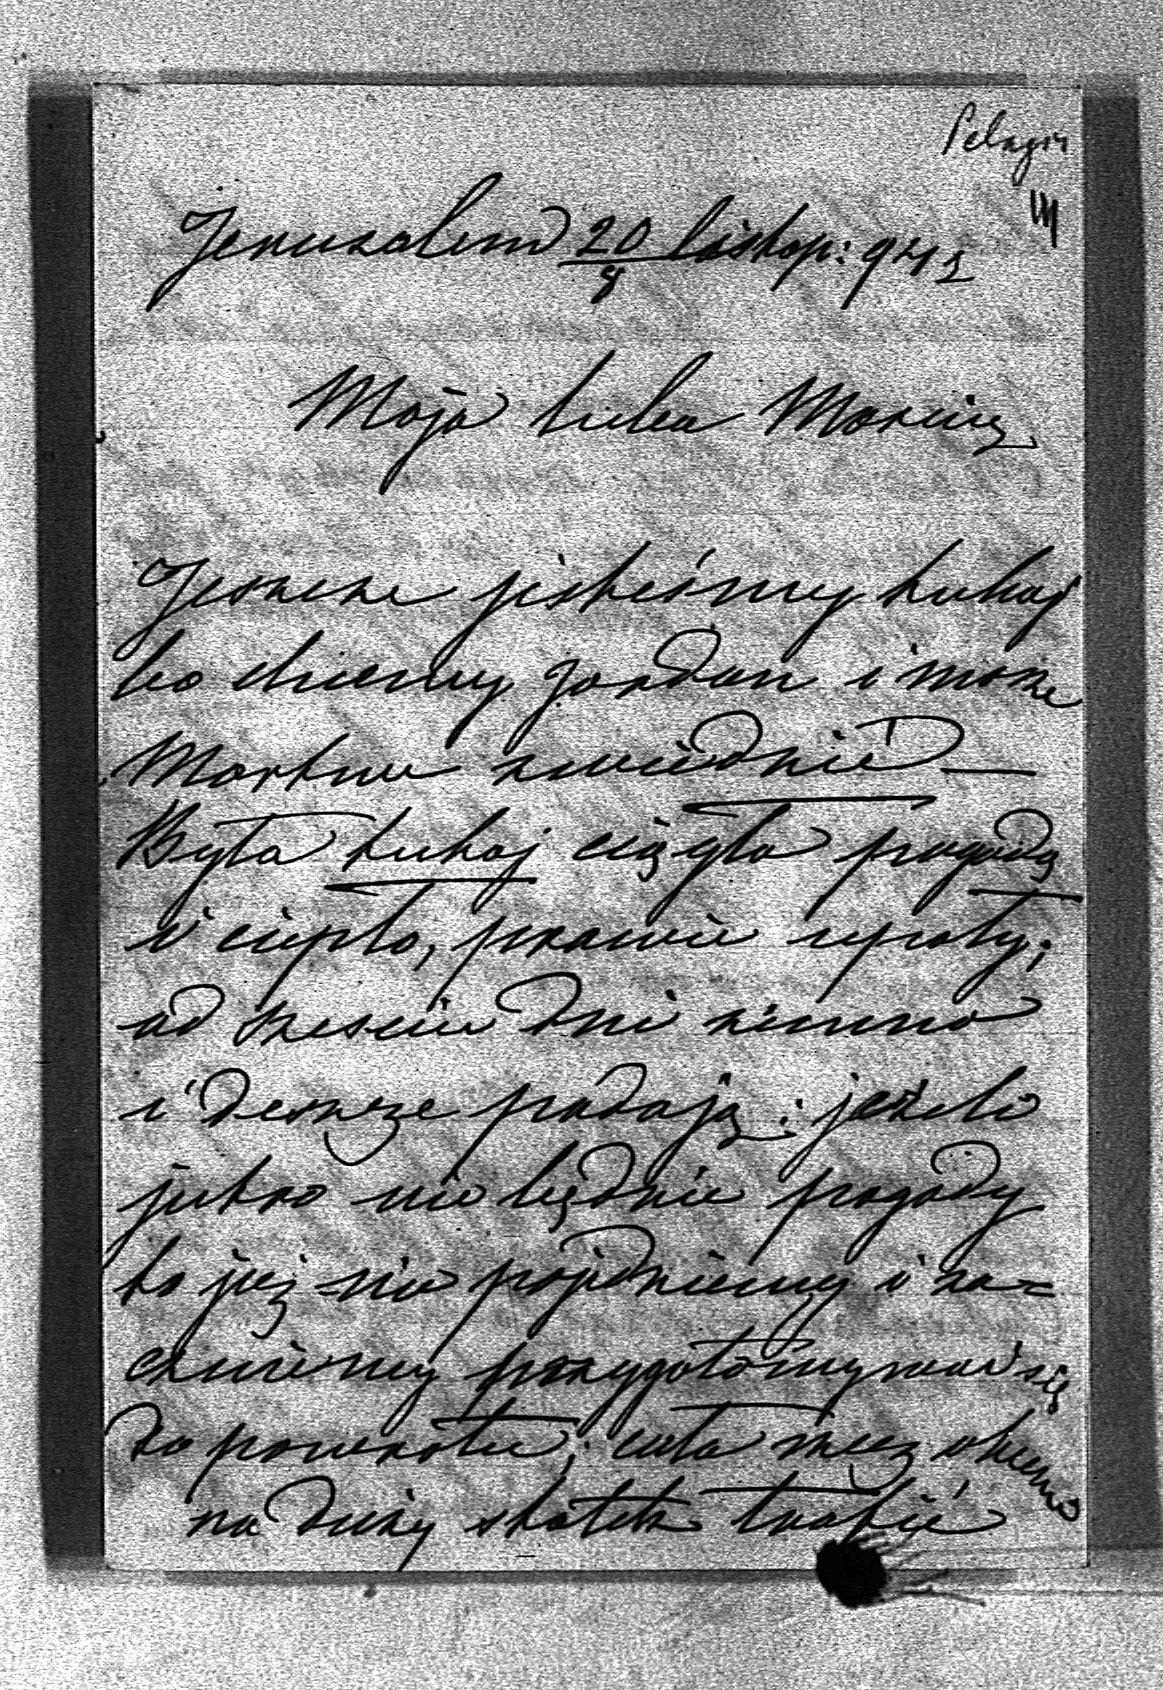 Pelagii
Jerusalem 20/8 listop:
Moja luba Maniu
Jeszcze jesteśmy tutaj
bo chcemy Jordan i morze
Martwe zwiedzić —
Była tutaj ciągła pogoda
i ciepło, prawie upały;
od sześciu dni zimno
i deszcze padają; jeżeli
jutro nie będzie pogody
to już nie pojedziemy i za=
czniemy przygotowywać się
do powrotu; cała rzecz
na duży statek trafić